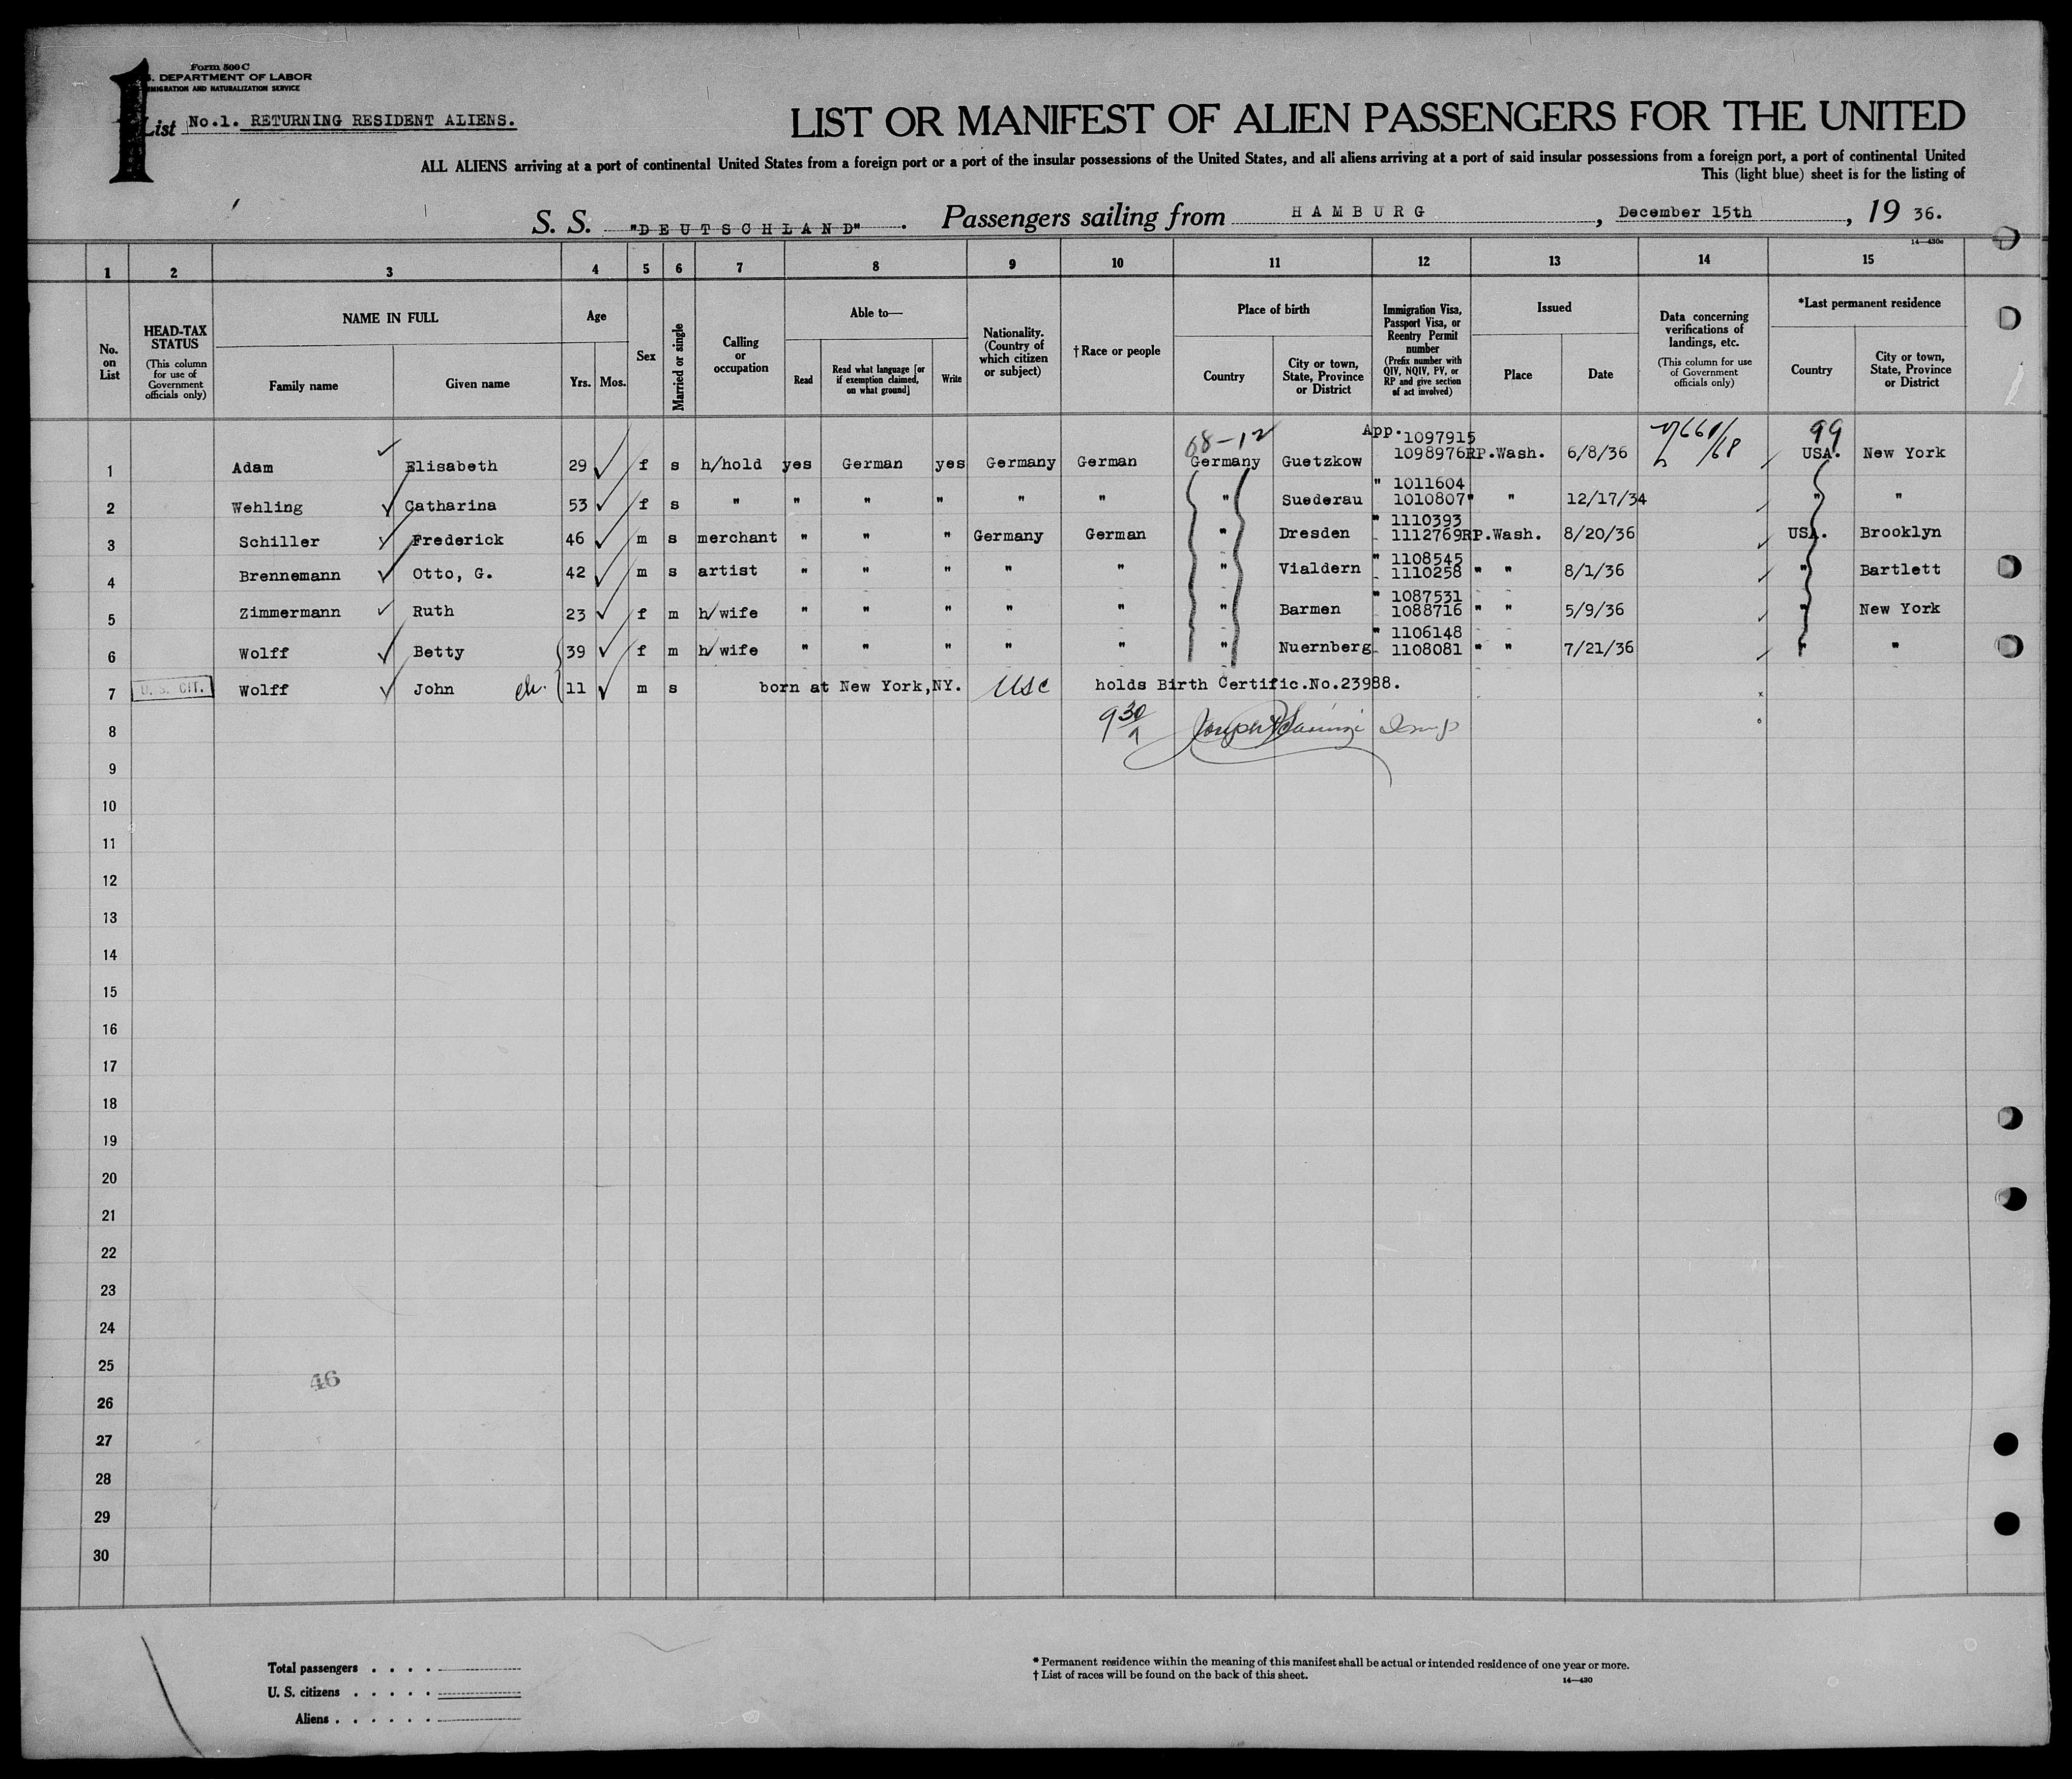 1
Form 500 C
DEPARTMENT OF LABOR
IMMIGRATION AND NATURALIZATION SERVICE
List No.1. RETURNING RESIDENT ALIENS.
LIST OR MANIFEST OF ALIEN PASSENGERS FOR THE UNITED
ALL ALIENS arriving at a port of continental United States from a foreign port or a port of the insular possessions of the United States, and all aliens arriving at a port of said insular possessions from a foreign port, a port of continental United
This (light blue) sheet is for the listing of
S. S. "DEUTSCHLAND". Passengers sailing from HAMBURG, December 15th, 19 36.
14—430c
1 2 3 4 5 6 7 8 9 10 11 12 13 14 15
No. on List
HEAD-TAX STATUS (This column for use of Government officials only)
NAME IN FULL Family name Given name
Age Yrs. Mos.
Sex
Married or single
Calling or occupation
Able to— Read Read what language [or if exemption claimed, on what ground] Write
Nationality. (Country of which citizen or subject)
† Race or people
Place of birth Country City or town, State, Province or District
Immigration Visa, Passport Visa, or Reentry Permit number (Prefix number with QIV, NQIV, PV, or RP and give section of act involved)
Issued Place Date
Data concerning verifications of landings, etc. (This column for use of Government officials only)
*Last permanent residence Country City or town, State, Province or District
68-12 App. 1097915 99
1 Adam Elisabeth 29 f s h/hold yes German yes Germany German Germany Guetzkow 1098976RP.Wash. 6/8/36 USA. New York
" 1011604
2 Wehling Catharina 53 f s " " " " " " " Suederau 1010807" " 12/17/34 " "
" 1110393
3 Schiller Frederick 46 m s merchant " " " Germany German " Dresden 1112769RP.Wash. 8/20/36 USA. Brooklyn
" 1108545
4 Brennemann Otto, G. 42 m s artist " " " " " " Vialdern 1110258 " " 8/1/36 " Bartlett
" 1087531
5 Zimmermann Ruth 23 f m h/wife " " " " " " Barmen 1088716 " " 5/9/36 " New York
" 1106148
6 Wolff Betty 39 f m h/wife " " " " " " Nuernberg 1108081 " " 7/21/36 " "
7 U. S. CIT. Wolff John ch. 11 m s born at New York,NY. USC holds Birth Certific.No.23988.
8 9 30
9
10
11
12
13
14
15
16
17
18
19
20
21
22
23
24
25
46
26
27
28
29
30
Total passengers . . . .
U. S. citizens . . . . .
Aliens . . . . . .
* Permanent residence within the meaning of this manifest shall be actual or intended residence of one year or more.
† List of races will be found on the back of this sheet.
14—430